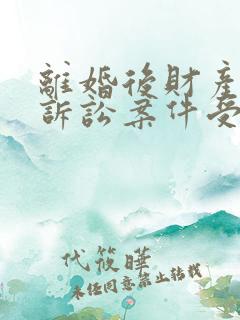 離婚後財產
訴訟案件受
代筱曄
未经同意禁止转载